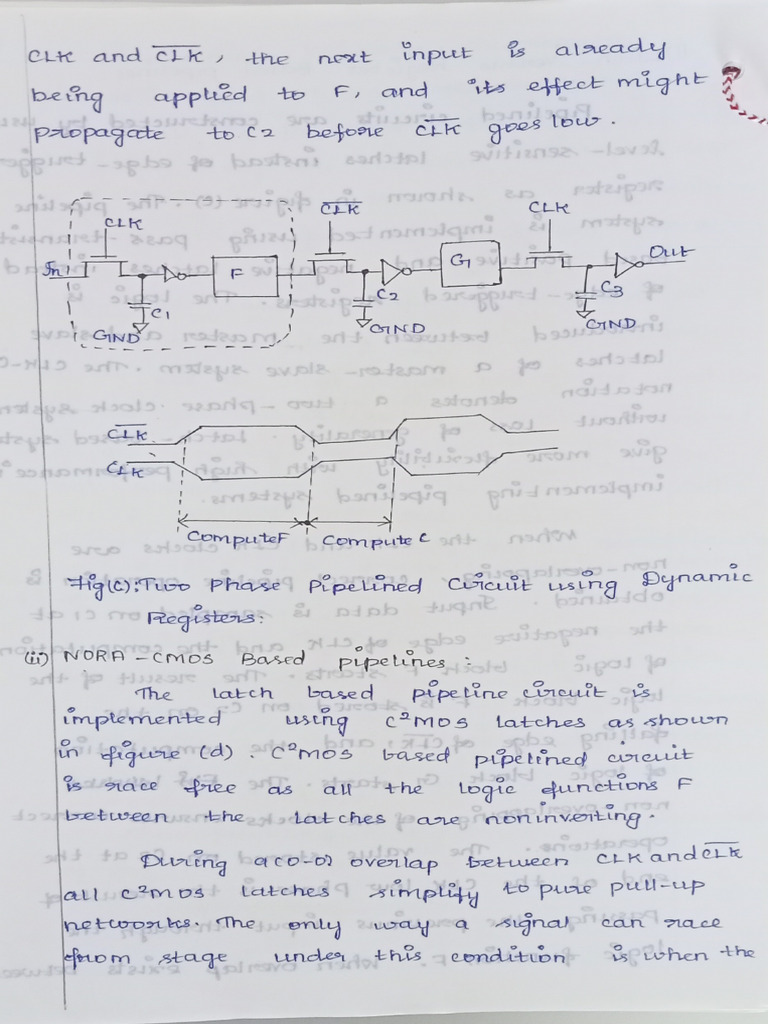 CLK and C̅L̅K̅, the next input is already
being applied to F, and its effect might
propagate to C2 before C̅L̅K̅ goes low.
CLK
C̅L̅K̅
CLK
In
F
G
Out
C1
C2
C3
GND
GND
GND
C̅L̅K̅
CLK
Compute F
Compute C
Fig(c): Two Phase Pipelined Circuit using Dynamic
Registers:
(ii) NORA-CMOS Based pipelines:
The latch based pipeline circuit is
implemented using C²MOS latches as shown
in figure (d). C²MOS based pipelined circuit
is race free as all the logic functions F
between the latches are noninverting.
During a (0-0) overlap between CLK and C̅L̅K̅
all C²MOS latches simplify to pure pull-up
networks. The only way a signal can race
from stage under this condition is when the